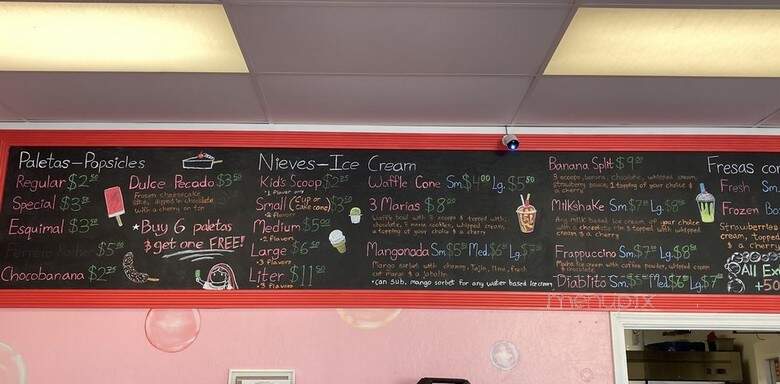 Paletas-Popsicles
Regular $2
Special $3
Esquimal $3
Chocobanana $2
Dulce Pecado $3
Frozen cheesecake
slice, dipped in chocolate
with a cherry on top
*Buy 6 paletas
& get one FREE!
Nieves-Ice Cream
Kid's Scoop
•1 flavor
Small (Cup or Cake cone)
Medium $5
•2 flavors
Large $6
•3 flavors
Liter $11
•3 flavors
Waffle Cone Sm. Lg. $5
3 Marias $8
Waffle bowl with 3 scoops & topped with
chocolate, cookies, whipped cream,
a topping of your choice & a cherry
Mangonada Sm. $5 Med. $6 Lg.
Mango sorbet with chamoy, Tajin, lime, fresh
cut mango &
•Can sub. mango sorbet for any water based ice cream
Banana Split $9
3 scoops, banana, chocolate, whipped cream,
strawberry sauce, 1 topping of your choice &
a cherry
Milkshake Sm. $7 Lg. $8
Any milk based ice cream of your choice
with a chocolate rim & topped with whipped
cream & a cherry
Frappuccino Sm. $7 Lg. $8
ice cream with coffee powder, whipped cream
& chocolate
Diablito Sm. $5 Med. $6 Lg. $7
Fresas con
Fresh Sm
Frozen
Strawberries
cream, topped
& a cherry
All Ex
+50
menupix